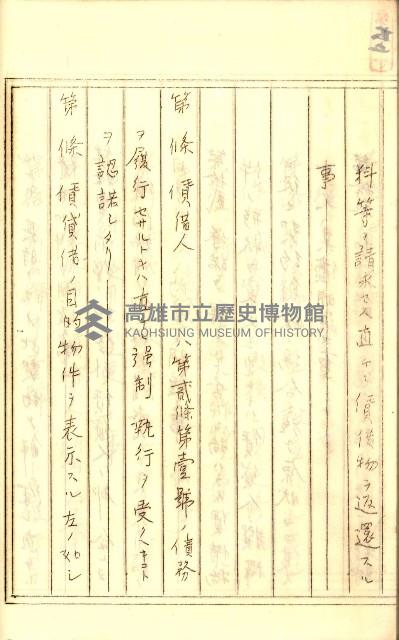 料等ヲ請求セス直チニ賃借物ヲ返還スル
事
第 條 賃借人 ハ第貳條第壹號ノ債務
ヲ履行セサルトキハ直チニ强制執行ヲ受クヘキコト
ヲ認諾シタリ
第 條 賃貸借ノ目的物件ヲ表示スル左ノ如シ
高雄市立歷史博物館
KAOHSIUNG MUSEUM OF HISTORY